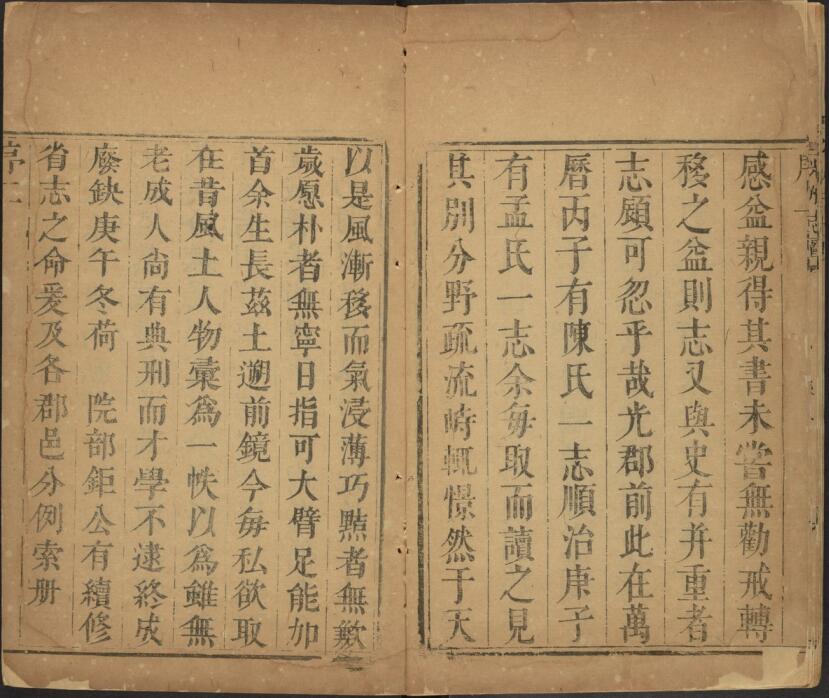 感益親得其書未嘗無勸戒轉
移之益則志又與史有并重者
志顧可忽乎哉光郡前此在萬
曆丙子有陳氏一志順治庚子
有孟氏一志余每取而讀之見
其別分野疏流峙輒憬然于天
以是風漸移而氣浸薄巧黠者無歉
歲愿朴者無寧日指可大臂足能加
首余生長茲土遡前鏡今每私欲取
在昔風土人物彙為一帙以為雖無
老成人尙有典刑而才學不逮終成
廢鈌庚午冬荷　院部鉅公有續修
省志之命爰及各郡邑分例索册
序二